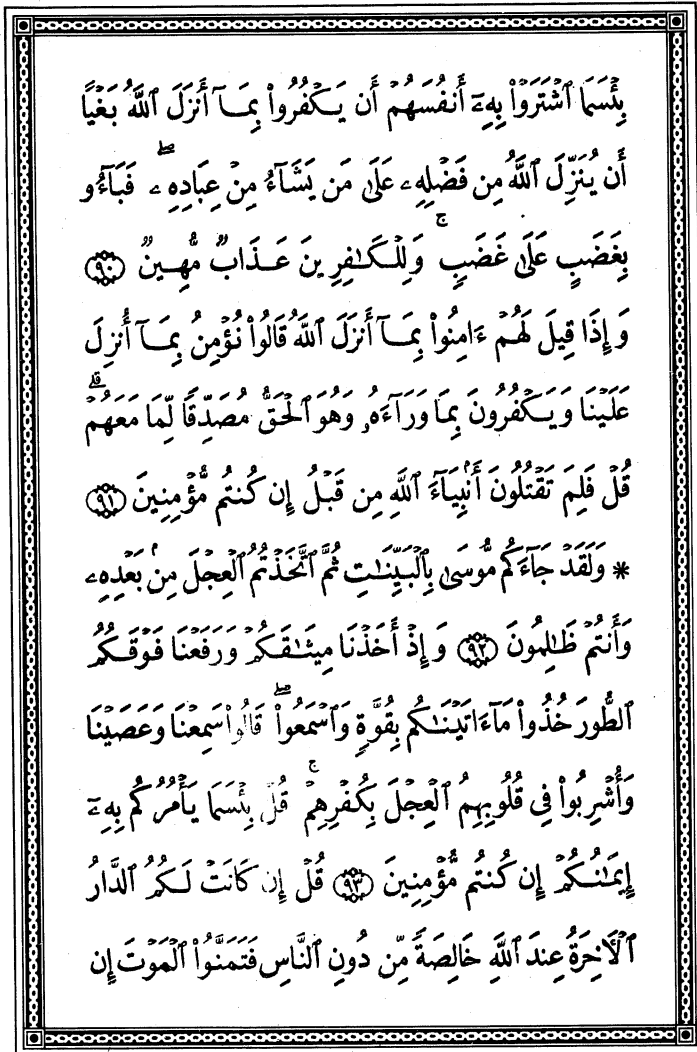 بِئۡسَمَا ٱشۡتَرَوۡاْ بِهِۦٓ أَنفُسَهُمۡ أَن يَكۡفُرُواْ بِمَآ أَنزَلَ ٱللَّهُ بَغۡيًا
أَن يُنَزِّلَ ٱللَّهُ مِن فَضۡلِهِۦ عَلَىٰ مَن يَشَآءُ مِنۡ عِبَادِهِۦۖ فَبَآءُو
بِغَضَبٍ عَلَىٰ غَضَبٍۚ وَلِلۡكَٰفِرِينَ عَذَابٞ مُّهِينٞ ٩٠
وَإِذَا قِيلَ لَهُمۡ ءَامِنُواْ بِمَآ أَنزَلَ ٱللَّهُ قَالُواْ نُؤۡمِنُ بِمَآ أُنزِلَ
عَلَيۡنَا وَيَكۡفُرُونَ بِمَا وَرَآءَهُۥ وَهُوَ ٱلۡحَقُّ مُصَدِّقٗا لِّمَا مَعَهُمۡۗ
قُلۡ فَلِمَ تَقۡتُلُونَ أَنۢبِيَآءَ ٱللَّهِ مِن قَبۡلُ إِن كُنتُم مُّؤۡمِنِينَ ٩١
* وَلَقَدۡ جَآءَكُم مُّوسَىٰ بِٱلۡبَيِّنَٰتِ ثُمَّ ٱتَّخَذۡتُمُ ٱلۡعِجۡلَ مِنۢ بَعۡدِهِۦ
وَأَنتُمۡ ظَٰلِمُونَ ٩٢ وَإِذۡ أَخَذۡنَا مِيثَٰقَكُمۡ وَرَفَعۡنَا فَوۡقَكُمُ
ٱلطُّورَ خُذُواْ مَآ ءَاتَيۡنَٰكُم بِقُوَّةٖ وَٱسۡمَعُواْۖ قَالُواْ سَمِعۡنَا وَعَصَيۡنَا
وَأُشۡرِبُواْ فِي قُلُوبِهِمُ ٱلۡعِجۡلَ بِكُفۡرِهِمۡۚ قُلۡ بِئۡسَمَا يَأۡمُرُكُم بِهِۦٓ
إِيمَٰنُكُمۡ إِن كُنتُم مُّؤۡمِنِينَ ٩٣ قُلۡ إِن كَانَتۡ لَكُمُ ٱلدَّارُ
ٱلۡأٓخِرَةُ عِندَ ٱللَّهِ خَالِصَةٗ مِّن دُونِ ٱلنَّاسِ فَتَمَنَّوُاْ ٱلۡمَوۡتَ إِن